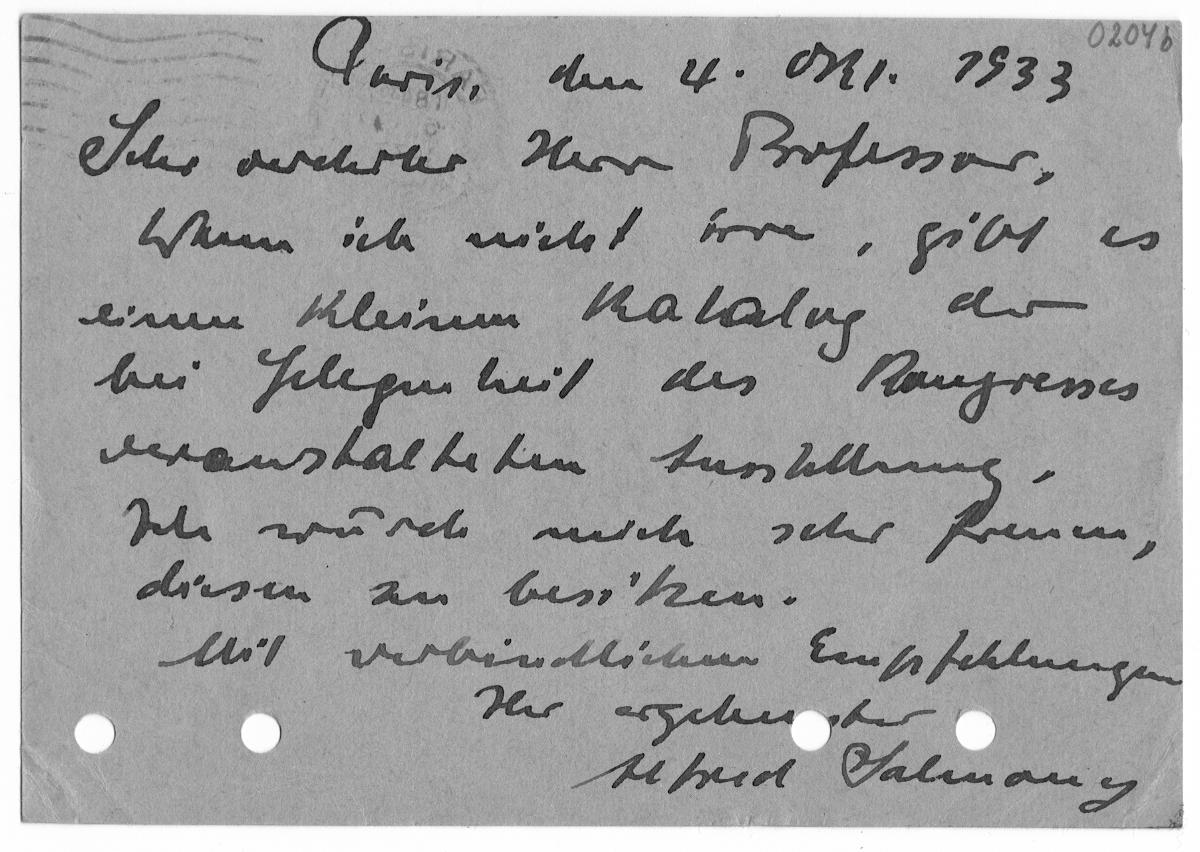 0204b
Paris, den 4. Okt. 1933
Sehr verehrter Herr Professor,
Wenn ich nicht irre, gibt es
einen kleinen Katalog der
bei Gelegenheit des Kongresses
veranstalteten Ausstellung.
Ich würde mich sehr freuen,
diesen zu besitzen.
Mit verbindlichen Empfehlungen
Ihr ergebenster
Alfred Salmony